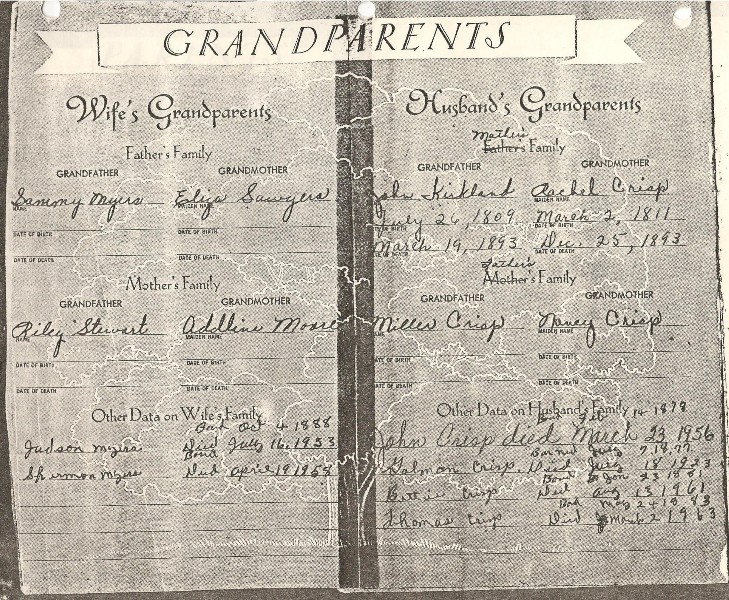 GRANDPARENTS
Wife's Grandparents
Father's Family
GRANDFATHER GRANDMOTHER
Sammy Myers Eliza Sawyers
NAME MAIDEN NAME
DATE OF BIRTH DATE OF BIRTH
DATE OF DEATH DATE OF DEATH
Mother's Family
GRANDFATHER GRANDMOTHER
Riley Stewart Addline Moore
NAME MAIDEN NAME
DATE OF BIRTH DATE OF BIRTH
DATE OF DEATH DATE OF DEATH
Other Data on Wife's Family
Born Oct 4 1888
Judson Myers Died July 16, 1953
Born
Shermon Myers Died April 19 1958
Husband's Grandparents
Mother's
Father's Family
GRANDFATHER GRANDMOTHER
John Kirkland Rachel Crisp
MAIDEN NAME
July 26, 1809 March 2, 1811
DATE OF BIRTH
March 19, 1893 Dec. 25, 1893
DATE OF DEATH
Father's
Mother's Family
GRANDFATHER GRANDMOTHER
Miller Crisp Nancy Crisp
NAME MAIDEN NAME
DATE OF BIRTH DATE OF BIRTH
DATE OF DEATH DATE OF DEATH
Other Data on Husband's Family
Born Feb 14 1879
John Crisp died March 23 1956
July
Crisp Died July 18 1923
Born 23 1881
Crisp Died Aug 13 1961
Born May 24 1883
Thomas Crisp Died March 2 1963